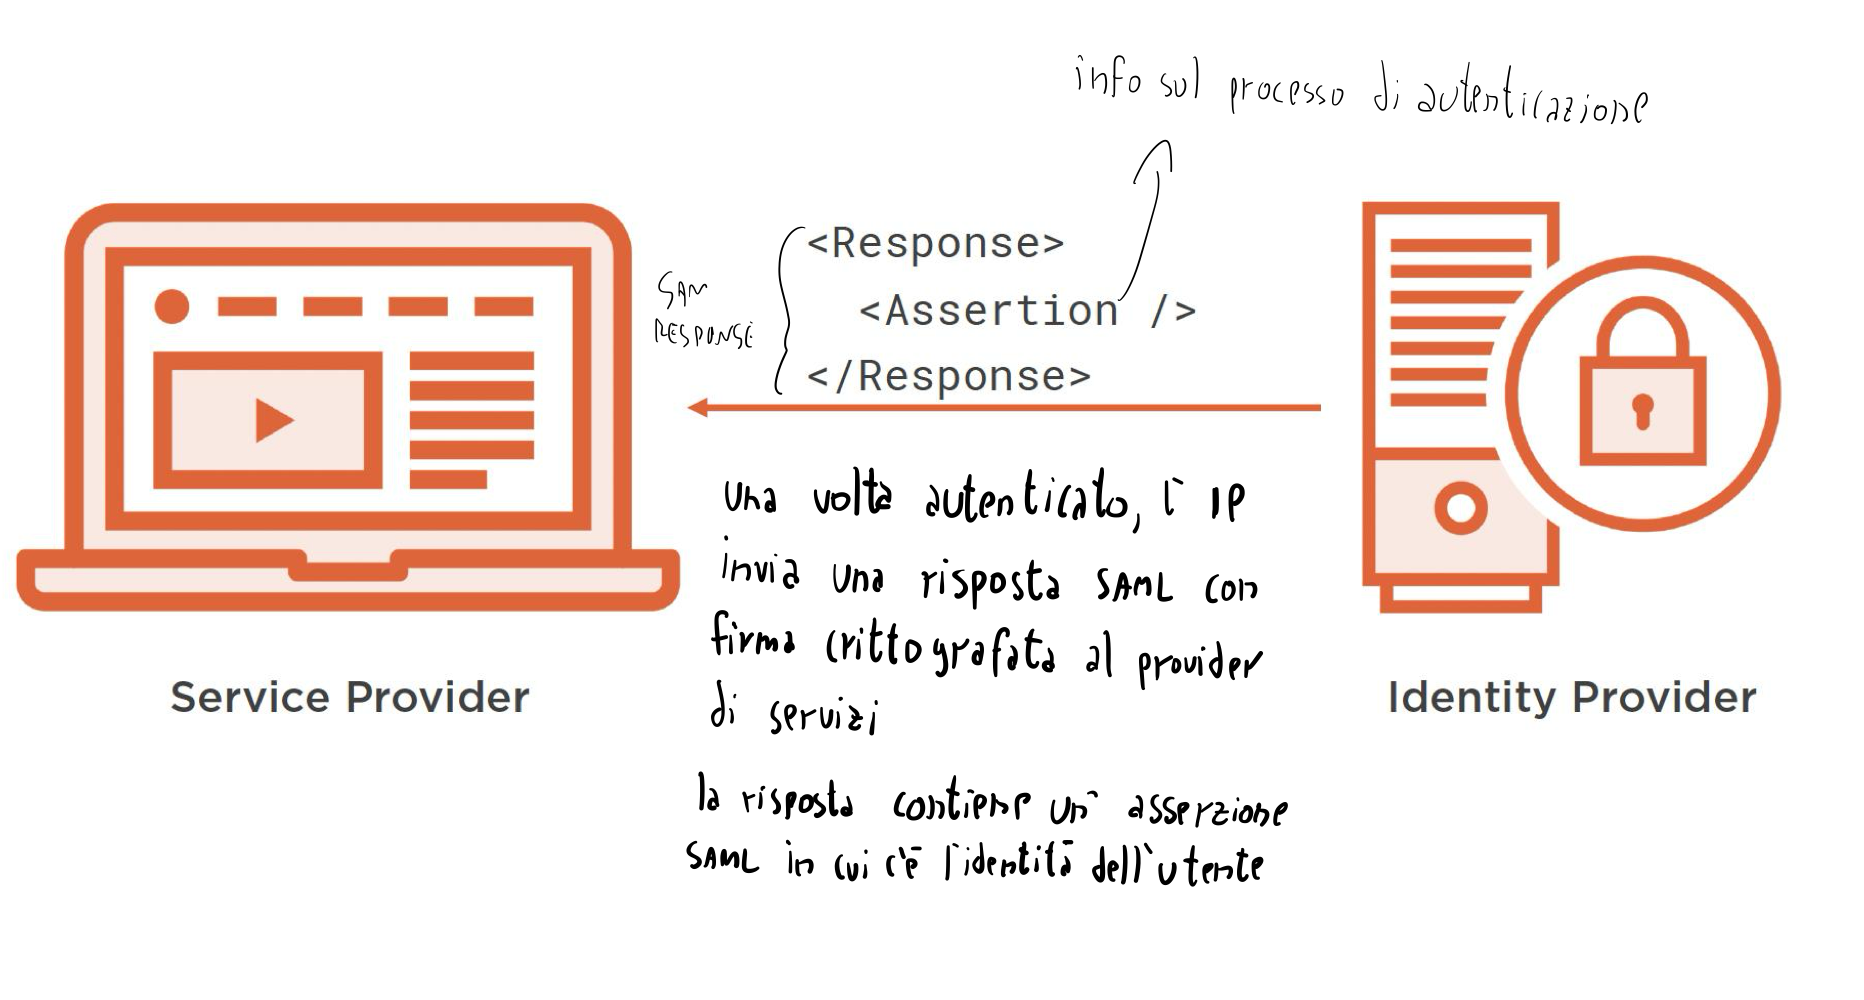 info sul processo di autenticazione
<Response>
<Assertion />
</Response>
SAM
RESPONSE
una volta autenticato, l' IP
invia una risposta SAML con
firma crittografata al provider
di servizi
la risposta contiene un' asserzione
SAML in cui c'è l'identità dell'utente
Service Provider
Identity Provider